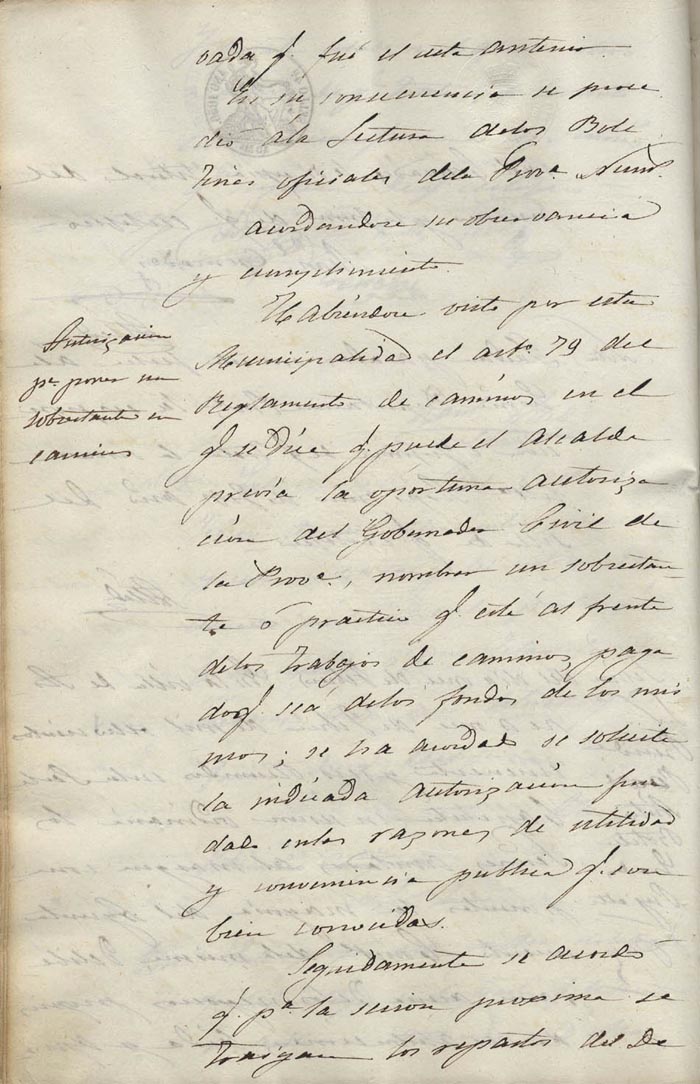 vada q. fué el acta anterior.
En su consecuencia se proce
dió á la Lectura delos Bole
tines oficiales dela Prova. Num.
acordandose su observancia
y cumplimiento.
Habiendose visto por esta
Municipalidad el arto. 79 del
Reglamento de caminos en el
q. se dice q. puede el Alcalde
previa la oportuna autoriza
ción del Gobernador Civil de
la Prova., nombrar un sobrestan
te ó practico q. esté al frente
delos trabajos de caminos, paga
do q. sea delos fondos de los mis
mos; se ha acordado se solicite
la indicada autorización fun
dada en las razones de utilidad
y conveniencia publica q. son
bien conocidas.
Seguidamente se acordó
q. pa. la sesion proxima se
traigan los repartos del De
Autorización
pa. poner un
sobrestante en
caminos